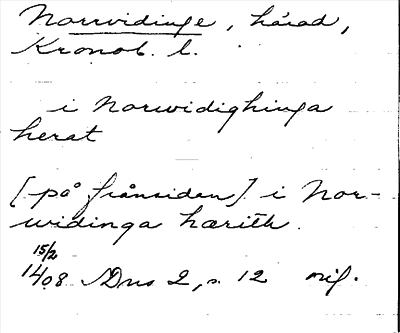 Norrvidinge, härad,
Kronob. l.
i Norwidighinga
herat
[på frånsidan] i Nor-
widinga hærith.
15/2
1408 Dns 2, s. 12 orig.